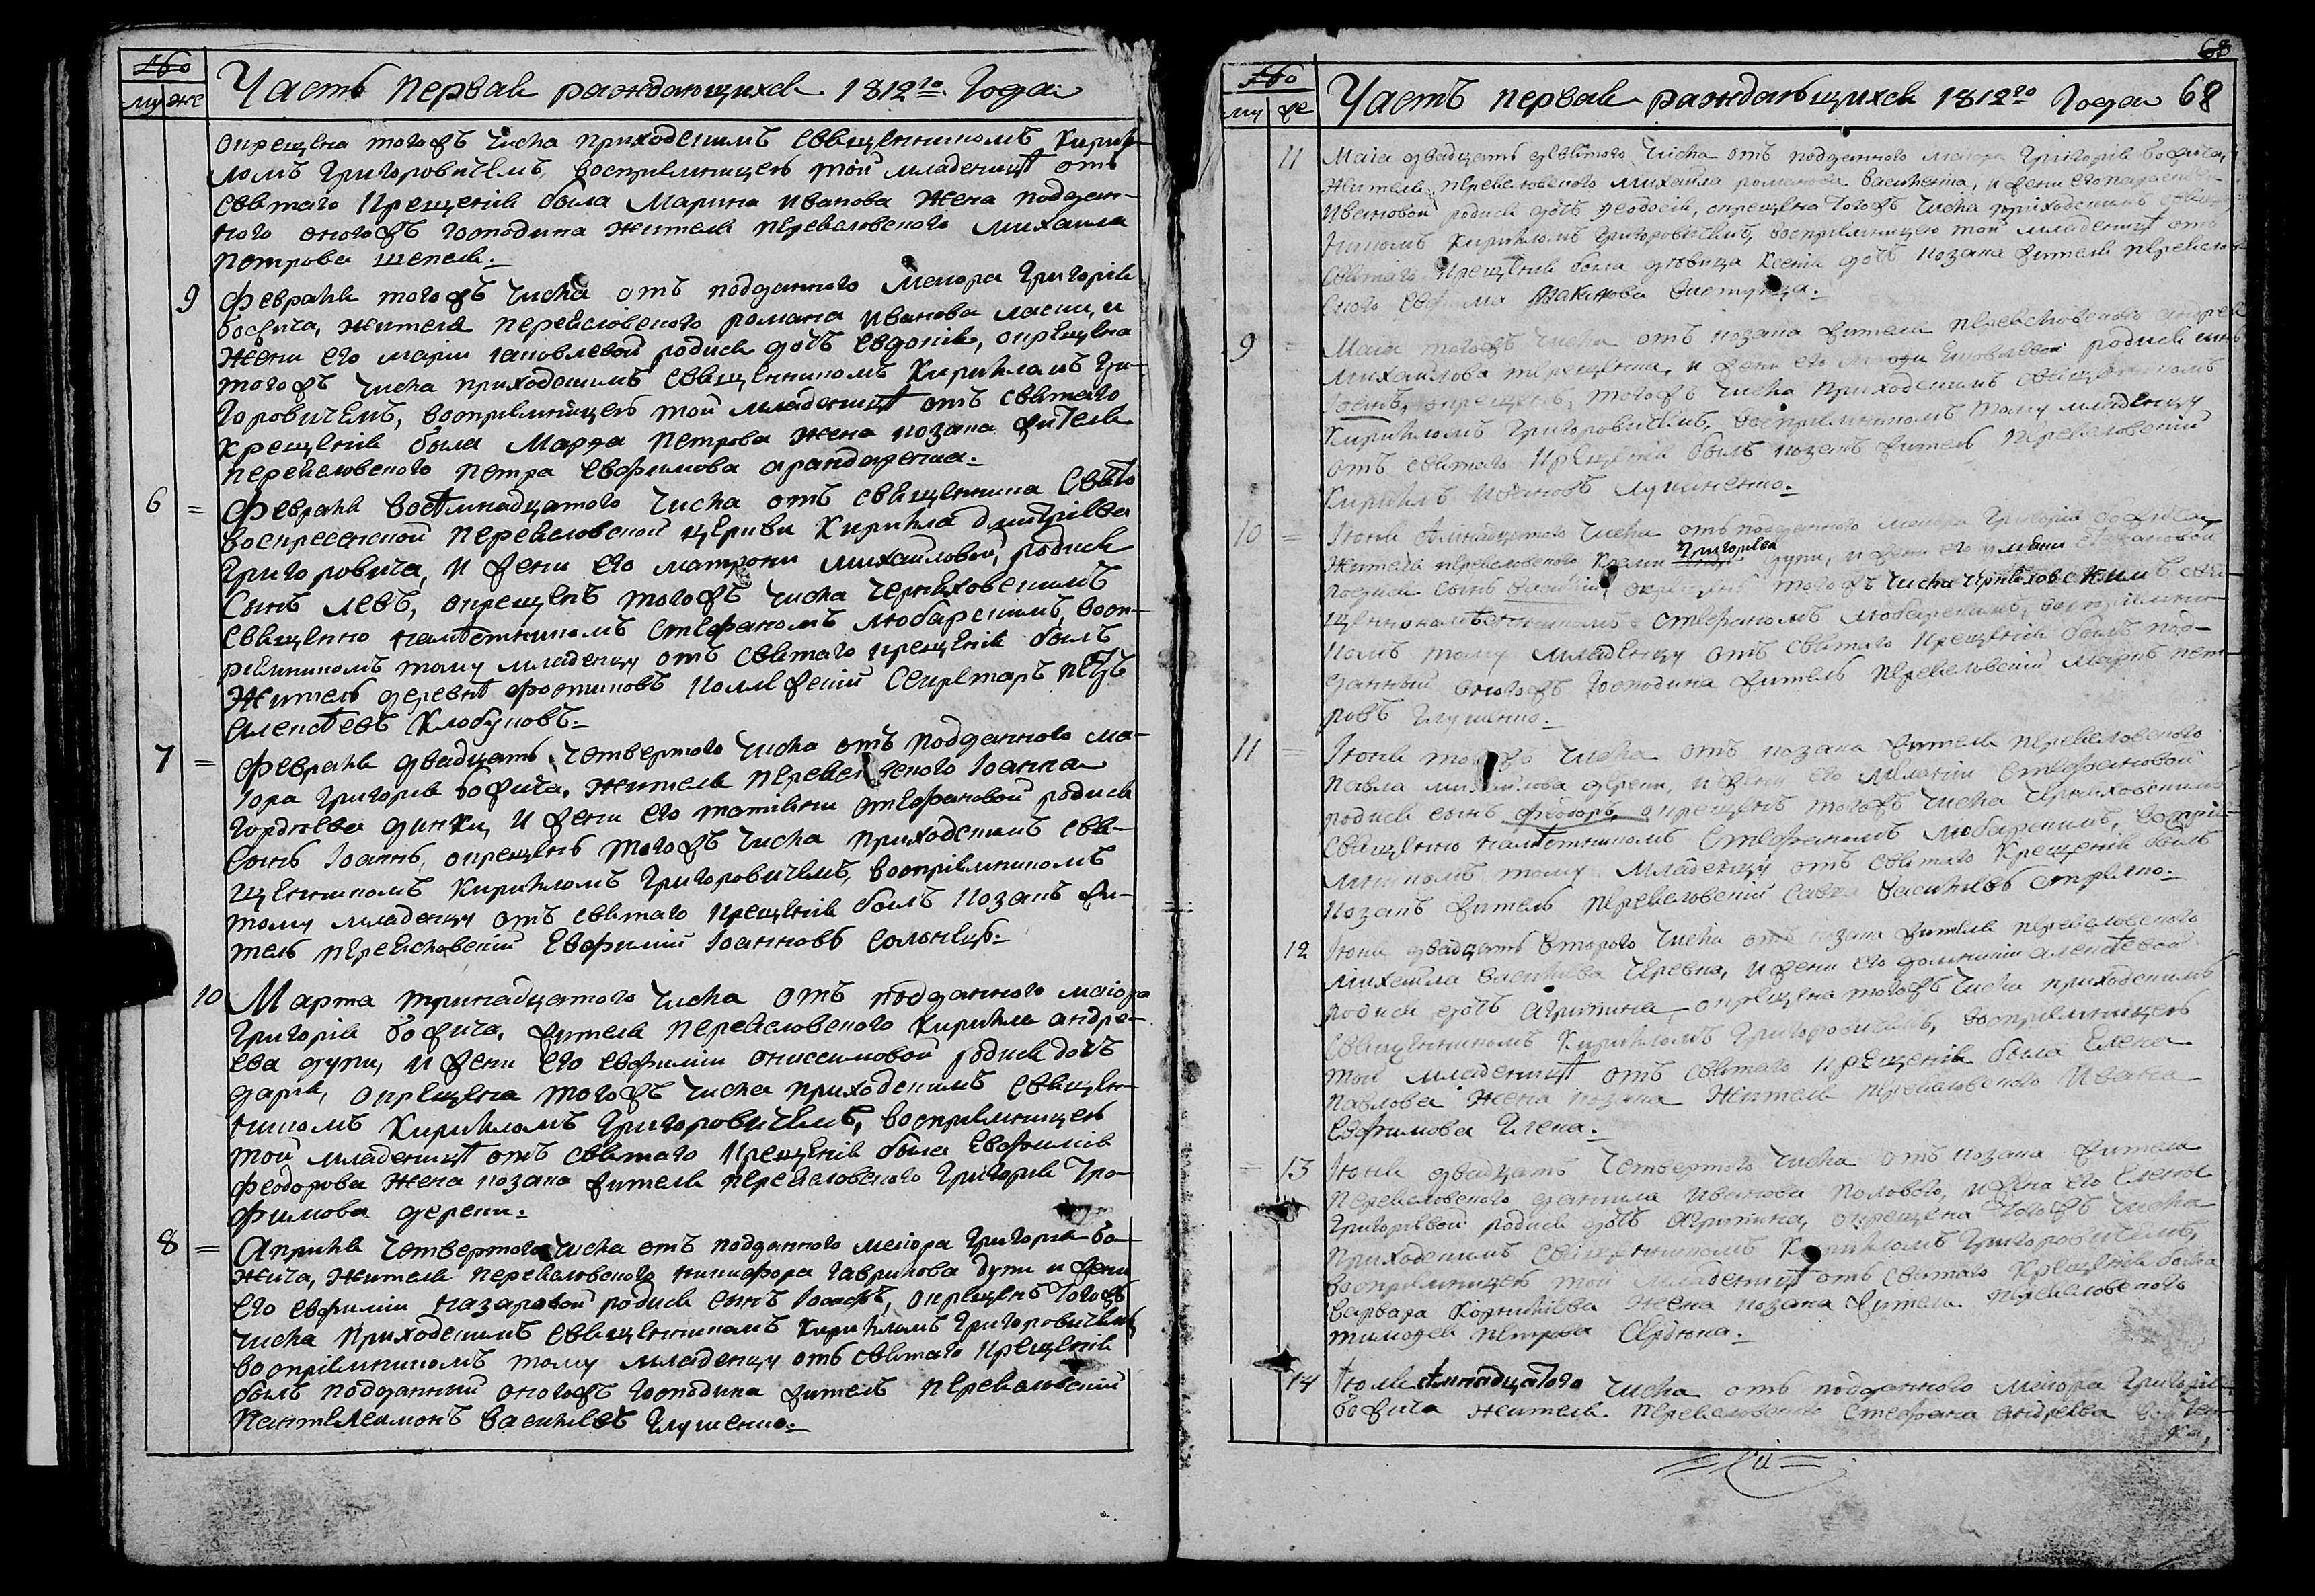 Часть первая раждающихся 1812го Года
му же
окрещена тогожъ числа приходскимъ священникомъ Кирил-
ломъ Григоровичемъ, восприемницею той младеницѣ отъ
святаго крещенія была Марина Иванова жена поддан-
ного оногожъ господина жителя переясловского Михаила
Петрова шепеля.
9 Февраля тогожъ числа отъ подданного маиора Григорія
божича, жителя переясловского романа иванова ласки, и
жени его маріи іаковлевой родися дочь евдокія, окрещена
тогожъ числа приходскимъ священникомъ Кирилломъ Гри-
горовичемъ, восприемницею той младеницѣ отъ святаго
крещенія была Марѳа петрова жена козака жителя
переясловского петра евфимова
6 = Февраля восѣмнадцатого числа отъ священника свято
воскресенской переясловской церкви Кирилла дмитріева
Григоровича, и жени его матрони михайловой, родися
Сынъ левъ, окрещенъ тогожъ числа черняховскимъ
священно намѣстникомъ Стефаномъ любарскимъ, восп-
ріемникомъ тому младенцу отъ святаго крещенія былъ
житель деревнѣ фостиковъ коллежскій Секретарь петръ
алексѣевъ Клобуковъ.
7 = Февраля двадцать четвертого числа отъ подданного ма-
іора Григорія божича, жителя переясловского Іоанна
гордѣева динки, и жени его татіяни стефановой родися
Сынъ Іоаннъ, окрещенъ тогожъ числа приходскимъ свя-
щенникомъ Кирилломъ Григоровичемъ, восприемникомъ
тому младенцу отъ святаго крещенія былъ козакъ жи-
тель переясловскій Евфимій Іоанновъ солонецъ.
10 Марта тринадцатого числа отъ подданного маіора
Григорія божича, жителя переясловского Кирилла андре-
ева дупи, и жени его евфиміи ониссимовой родися дочь
дарія, окрещена тогожъ числа приходскимъ священ-
никомъ Кирилломъ Григоровичемъ, восприемницею
той младеницѣ отъ святаго крещенія была Евфимія
Феодорова жена козака жителя переясловского Григорія Тро-
фимова дереки.
8 = Априля четвертого числа отъ подданного маиора Григорія бо-
жича, жителя переясловского никифора гаврилова дупи и жени
его евфиміи назаровой родися сынъ Іосифъ, окрещенъ тогожъ
числа приходскимъ священникомъ Кирилломъ Григоровичемъ,
восприемникомъ тому младенцу отъ святаго крещенія
былъ подданный оногожъ господина житель переясловскій
Пантелеимонъ васильевъ Глушенко.
68
Часть первая раждающихся 1812го Года 68
му же
11 Маіа двадцать девятого числа отъ подданного маіора Григорія божича,
жителя переясловского Михайла романова и жени его параскевіи
Ивановой родися дочь Ѳеодосія, окрещена тогожъ числа приходскимъ свящ
никомъ Кирилломъ Григоровичемъ, восприемницею той младеницѣ отъ
святаго крещенія была дѣвица Ксенія дочь козака жителя переяслов
ского
9 = Маіа тогожъ числа отъ козака жителя переясловского андрея
михайлова терещенка, и жени его родися сынъ
окрещенъ, тогожъ числа приходскимъ священникомъ
Кирилломъ Григоровичемъ, восприемникомъ тому младенцу
отъ святаго крещенія былъ козакъ житель переясловскій
Кириллъ Ивановъ
10 = Іюня осмнадцатого числа отъ подданного маіора Григорія божича
жителя переясловского Григорієва дупи, и жени его
родися сынъ василій, окрещенъ тогожъ числа черняховскимъ свя-
щеннонамѣстникомъ Стефаномъ любарскимъ, восприемни-
комъ тому младенцу отъ святаго крещенія былъ под-
данный оногожъ господина житель переясловскій пет-
ровъ Глушенко.
11 = Іюня тогожъ числа отъ козака жителя переясловского
Павла михайлова дереки, и жени его Меланіи Стефановой
родися сынъ феодоръ, окрещенъ тогожъ числа черняховскимъ
священно намѣстникомъ Стефаномъ любарскимъ, воспри-
емникомъ тому младенцу отъ святаго крещенія былъ
козакъ житель переясловскій савва васильевъ
12 Іюня двадцать второго числа отъ козака жителя переясловского
Михайла васильева и жени его домникіи алексѣевой
родися дочь Агрипина, окрещена тогожъ числа приходскимъ
священникомъ Кирилломъ Григоровичемъ, восприемницею
той младеницѣ отъ святаго крещенія была Елена
Павлова жена козака жителя переясловского Ивана
Евфимова
= 13 Іюня двадцать четвертого числа отъ козака жителя
переясловского даниила иванова полового, и жены его Елены
Григорієвой родися дочь Агрипина, окрещена тогожъ числа
приходскимъ священникомъ Кирилломъ Григоровичемъ,
восприемницею той младеницѣ отъ святаго крещенія была
варвара Корнилієва жена козака жителя переясловского
тимоѳея петрова Сердюка.
14 Іюля осмнадцатого числа отъ подданного маіора Григорія
божича жителя переясловского Стефана андрєєва
ка,